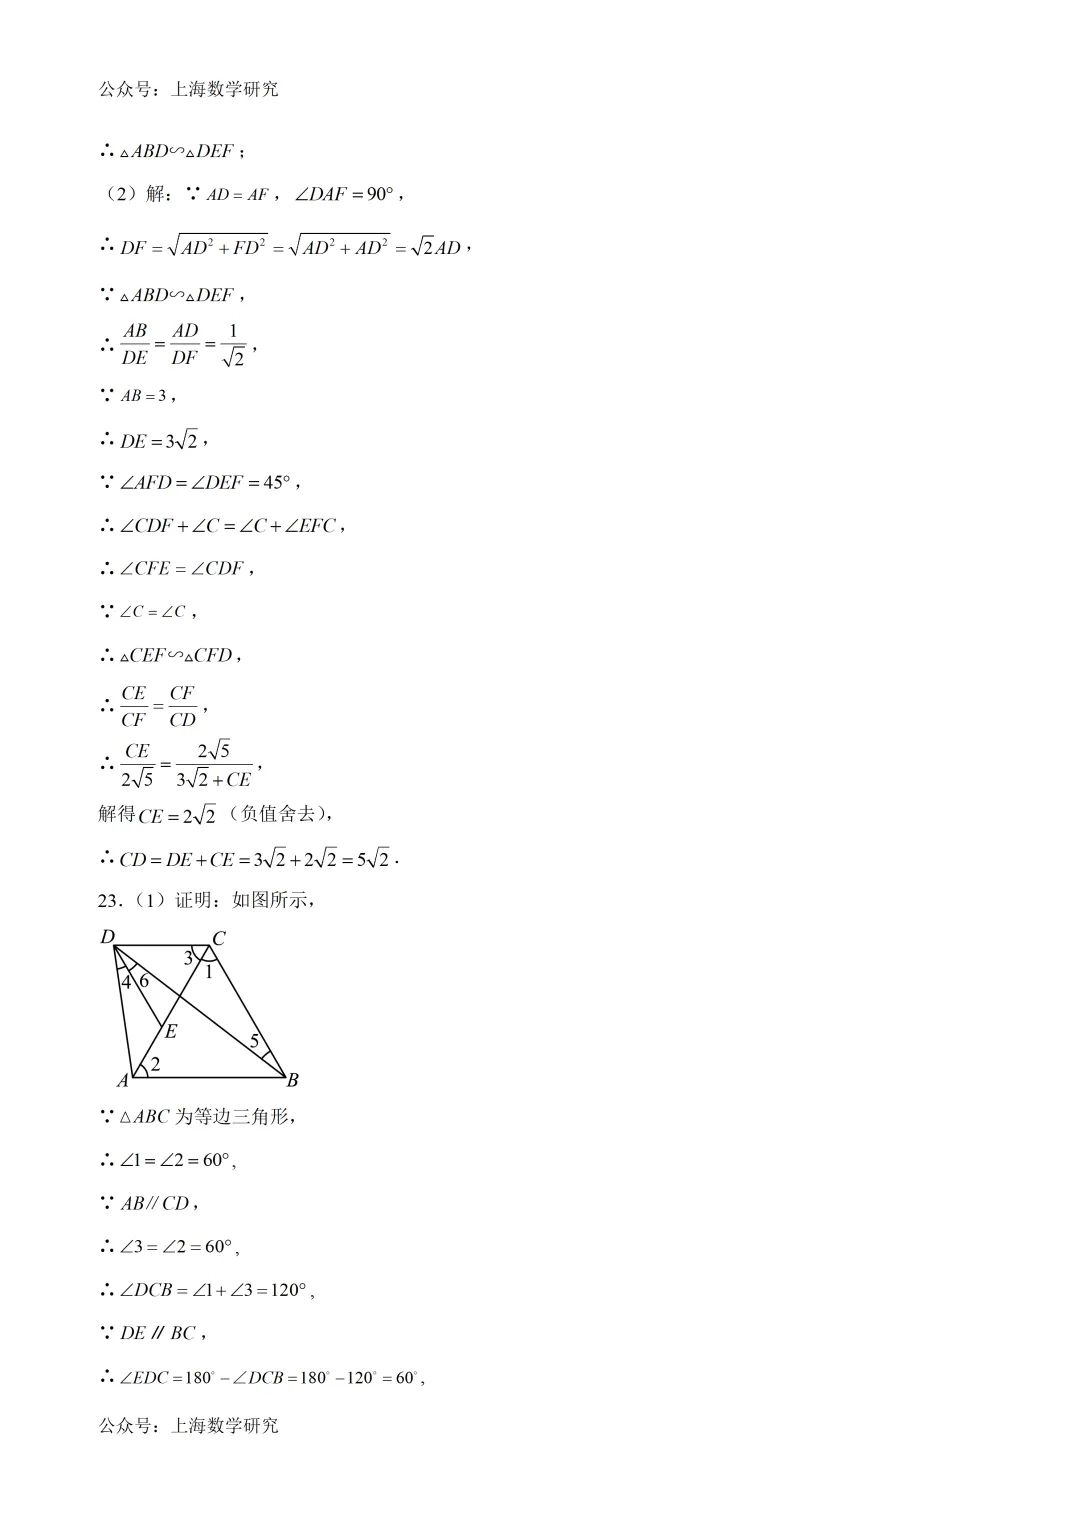 公众号：上海数学研究
∴△ABD∽△DEF；
（2）解：∵AD=AF，∠DAF=90°，
∴DF=√(AD²+FD²)=√(AD²+AD²)=√2AD，
∵△ABD∽△DEF，
∴AB/DE=AD/DF=1/√2，
∵AB=3，
∴DE=3√2，
∵∠AFD=∠DEF=45°，
∴∠CDF+∠C=∠C+∠EFC，
∴∠CFE=∠CDF，
∵∠C=∠C，
∴△CEF∽△CFD，
∴CE/CF=CF/CD，
∴CE/2√5=2√5/(3√2+CE)，
解得CE=2√2（负值舍去），
∴CD=DE+CE=3√2+2√2=5√2．
23.（1）证明：如图所示，
D C
3 1
4 6
E
5
2
A B
∵△ABC为等边三角形，
∴∠1=∠2=60°,
∵AB∥CD，
∴∠3=∠2=60°,
∴∠DCB=∠1+∠3=120°,
∵DE∥BC，
∴∠EDC=180°−∠DCB=180°−120°=60°,
公众号：上海数学研究